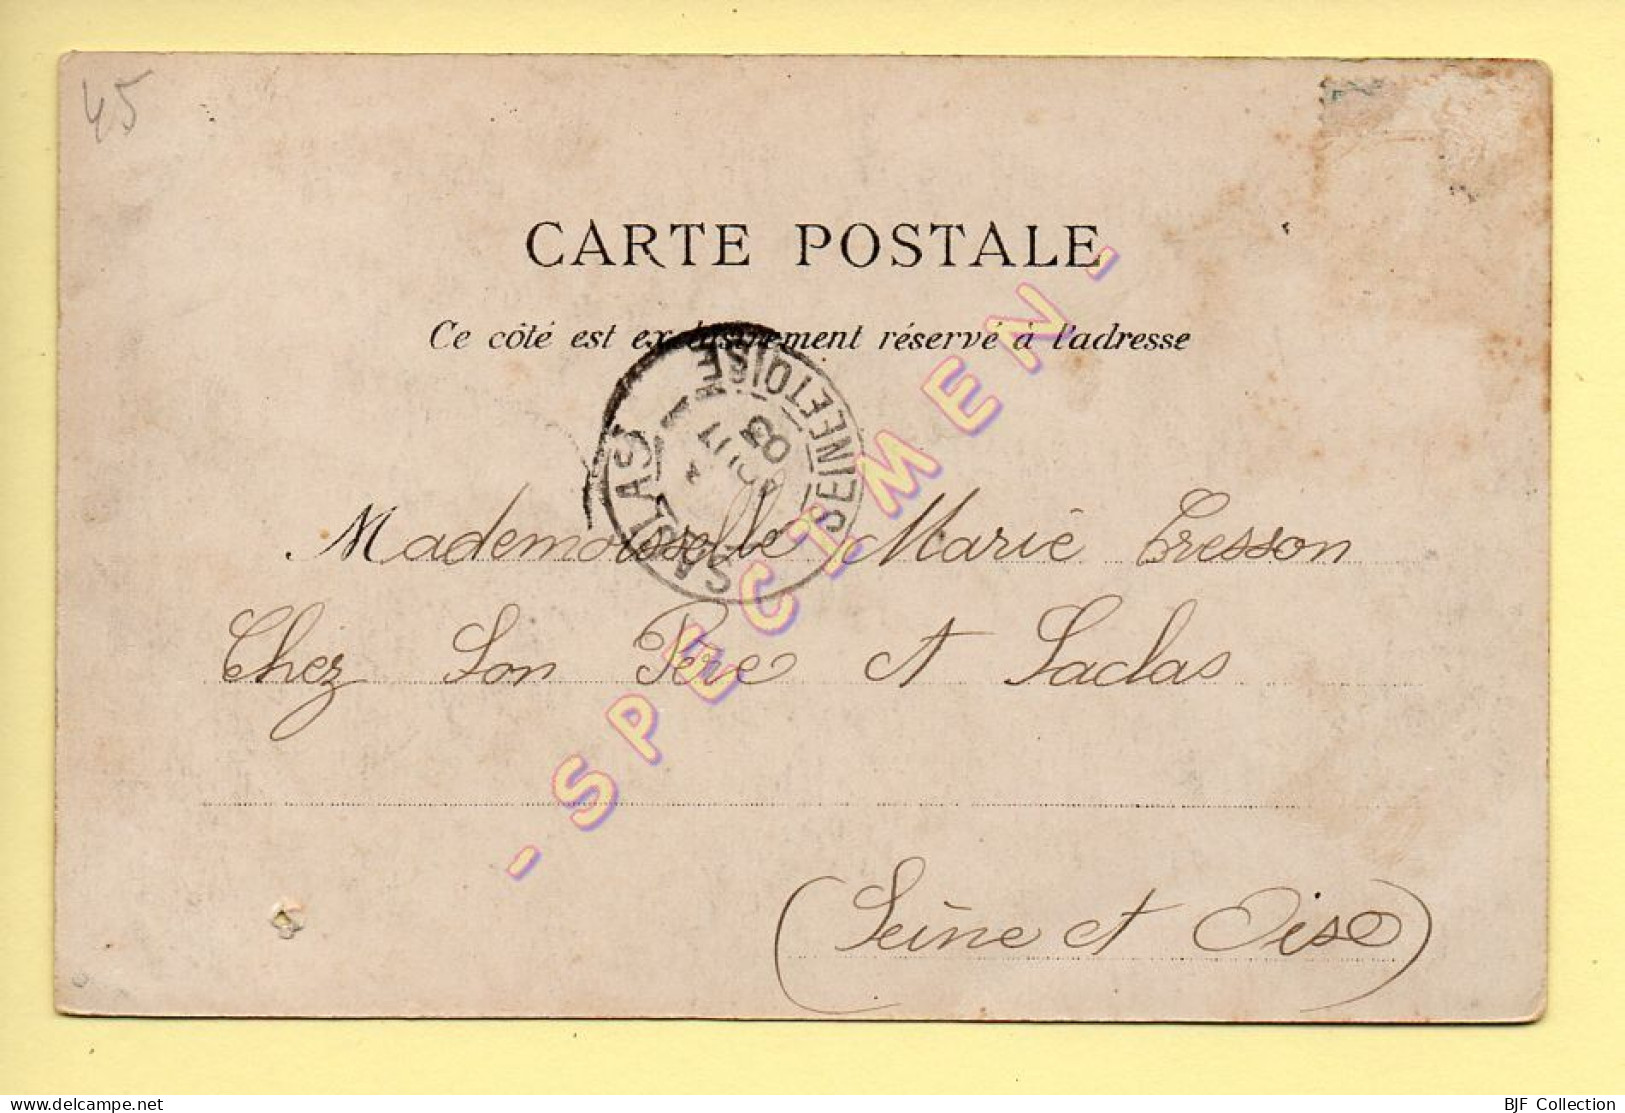 45
CARTE POSTALE
Ce côté est exclusivement réservé à l'adresse
SACLAS
SEINE ET OISE
03
Mademoiselle Marie Cresson
Chez Son Père A Saclas
(Seine et Oise)
- SPECIMEN -
BJF Collection